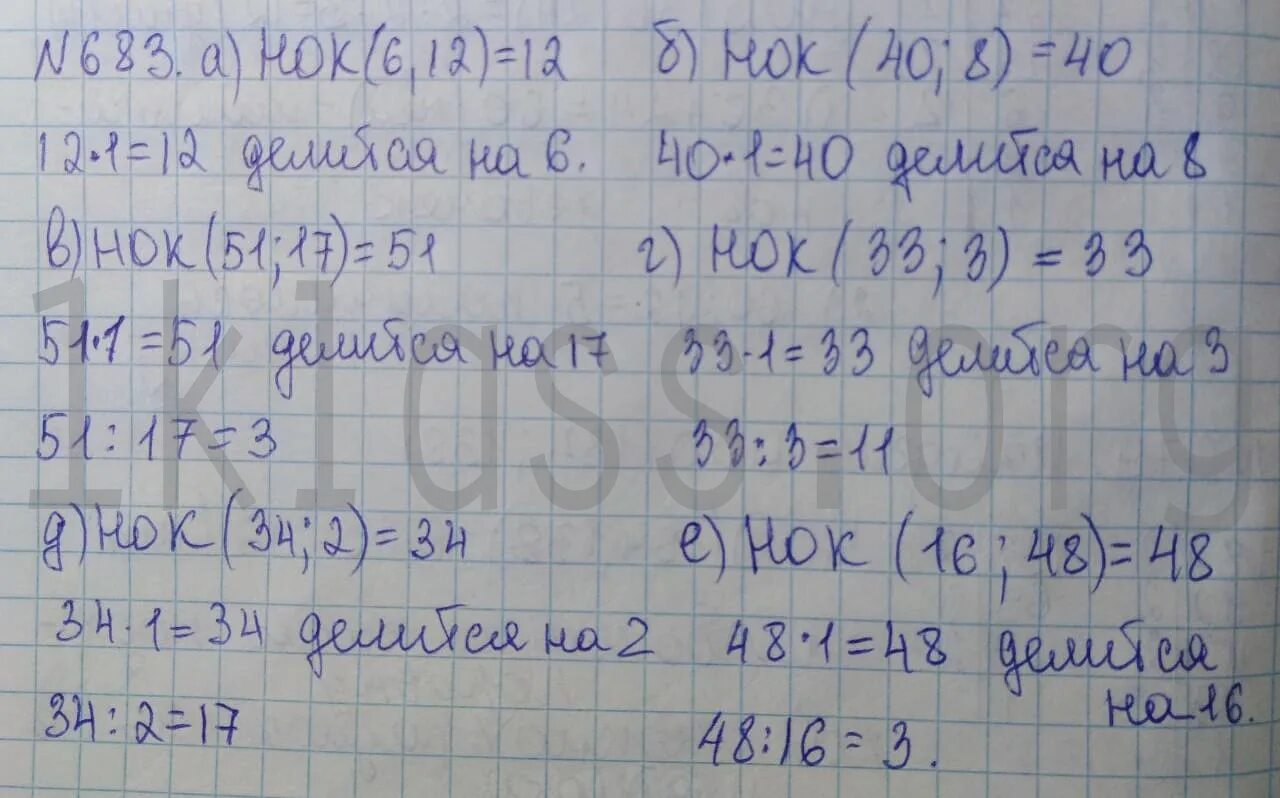 №683. а) НОК(6,12)=12 б) НОК (40; 8) =40
12·1=12 делится на 6. 40·1=40 делится на 8
в) НОК(51;17)=51 г) НОК (33; 3) = 33
51·1=51 делится на 17 33·1=33 делится на 3
51:17=3 33:3=11
д) НОК (34;2)=34 е) НОК (16; 48)=48
34·1=34 делится на 2 48·1=48 делится
на 16.
34:2=17 48:16=3.
1klass.org